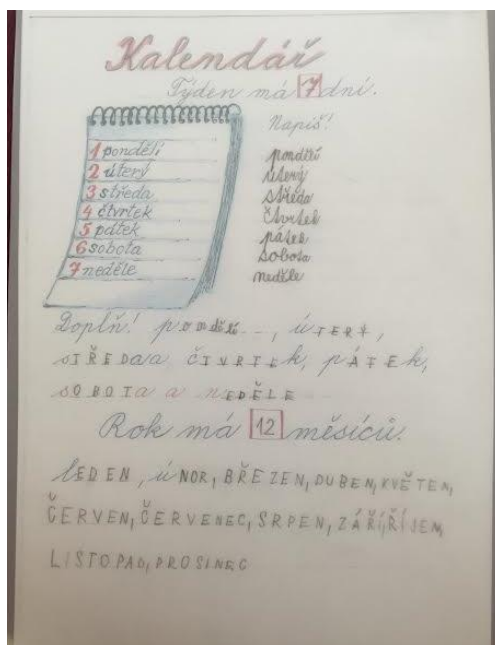 Kalendář
Týden má 7 dní.
1 pondělí
2 úterý
3 středa
4 čtvrtek
5 pátek
6 sobota
7 neděle
Napiš!
pondělí
úterý
středa
čtvrtek
pátek
sobota
neděle
Doplň! pondělí, úTERÝ,
STŘEDA a ČTVRTEk, pÁTEK,
SOBOTA a NEDĚLE
Rok má 12 měsíců.
lEDEN, úNOR, BŘEZEN, DUBEN, KVĚTEN,
ČERVEN, ČERVENEC, SRPEN, ZÁŘÍ, ŘÍJEN,
LISTOPAD, PROSINEC